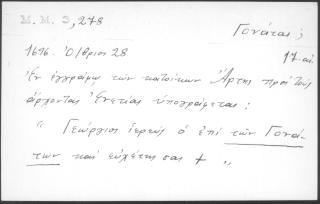 M. M. 3, 278
Γονάτας;
1696 Ὀ/βριος 28
17 αι.
Ἐν ἐγγράφῳ τῶν κατοίκων Ἄρτης πρὸς τοὺς
ἄρχοντας Ἐνετίας ὑπογράφεται:
“ Γεώργιος ἱερεὺς ὁ ἐπὶ τῶν Γονά-
των καὶ εὐχέτης σας + „